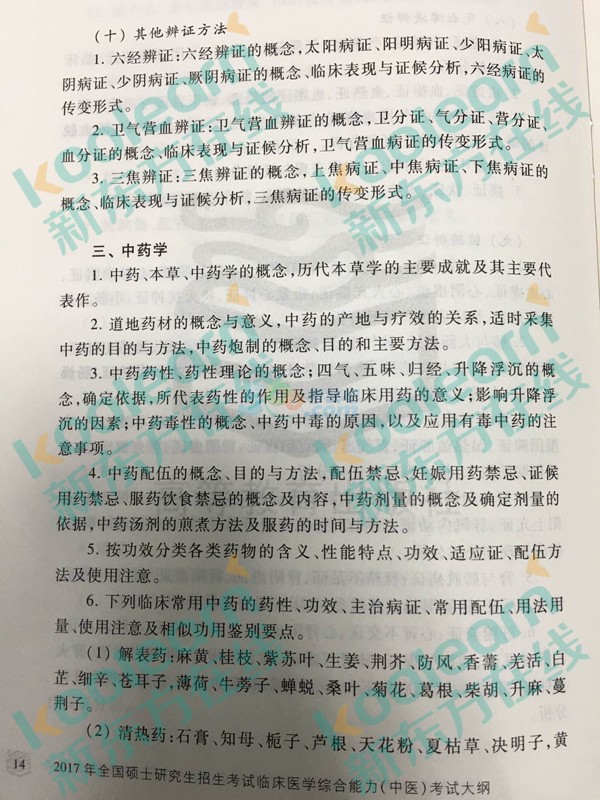 （十）其他辨证方法
1. 六经辨证：六经辨证的概念，太阳病证、阳明病证、少阳病证、太
阴病证、少阴病证、厥阴病证的概念、临床表现与证候分析，六经病证的
传变形式。
2. 卫气营血辨证：卫气营血辨证的概念，卫分证、气分证、营分证、
血分证的概念、临床表现与证候分析，卫气营血病证的传变形式。
3. 三焦辨证：三焦辨证的概念，上焦病证、中焦病证、下焦病证的
概念、临床表现与证候分析，三焦病证的传变形式。
三、中药学
1. 中药、本草、中药学的概念，历代本草学的主要成就及其主要代
表作。
2. 道地药材的概念与意义，中药的产地与疗效的关系，适时采集
中药的目的与方法，中药炮制的概念、目的和主要方法。
3. 中药药性、药性理论的概念；四气、五味、归经、升降浮沉的概
念，确定依据，所代表药性的作用及指导临床用药的意义；影响升降浮
沉的因素；中药毒性的概念、中药中毒的原因，以及应用有毒中药的注
意事项。
4. 中药配伍的概念、目的与方法，配伍禁忌、妊娠用药禁忌、证候
用药禁忌、服药饮食禁忌的概念及内容，中药剂量的概念及确定剂量的
依据，中药汤剂的煎煮方法及服药的时间与方法。
5. 按功效分类各类药物的含义、性能特点、功效、适应证、配伍方
法及使用注意。
6. 下列临床常用中药的药性、功效、主治病证、常用配伍、用法用
量、使用注意及相似功用鉴别要点。
（1）解表药：麻黄、桂枝、紫苏叶、生姜、荆芥、防风、香薷、羌活、白
芷、细辛、苍耳子，薄荷、牛蒡子、蝉蜕、桑叶、菊花、葛根、柴胡、升麻、蔓
荆子。
（2）清热药：石膏、知母、栀子、芦根、天花粉、夏枯草、决明子，黄
14 2017年全国硕士研究生招生考试临床医学综合能力（中医）考试大纲
Koolearn
新东方在线